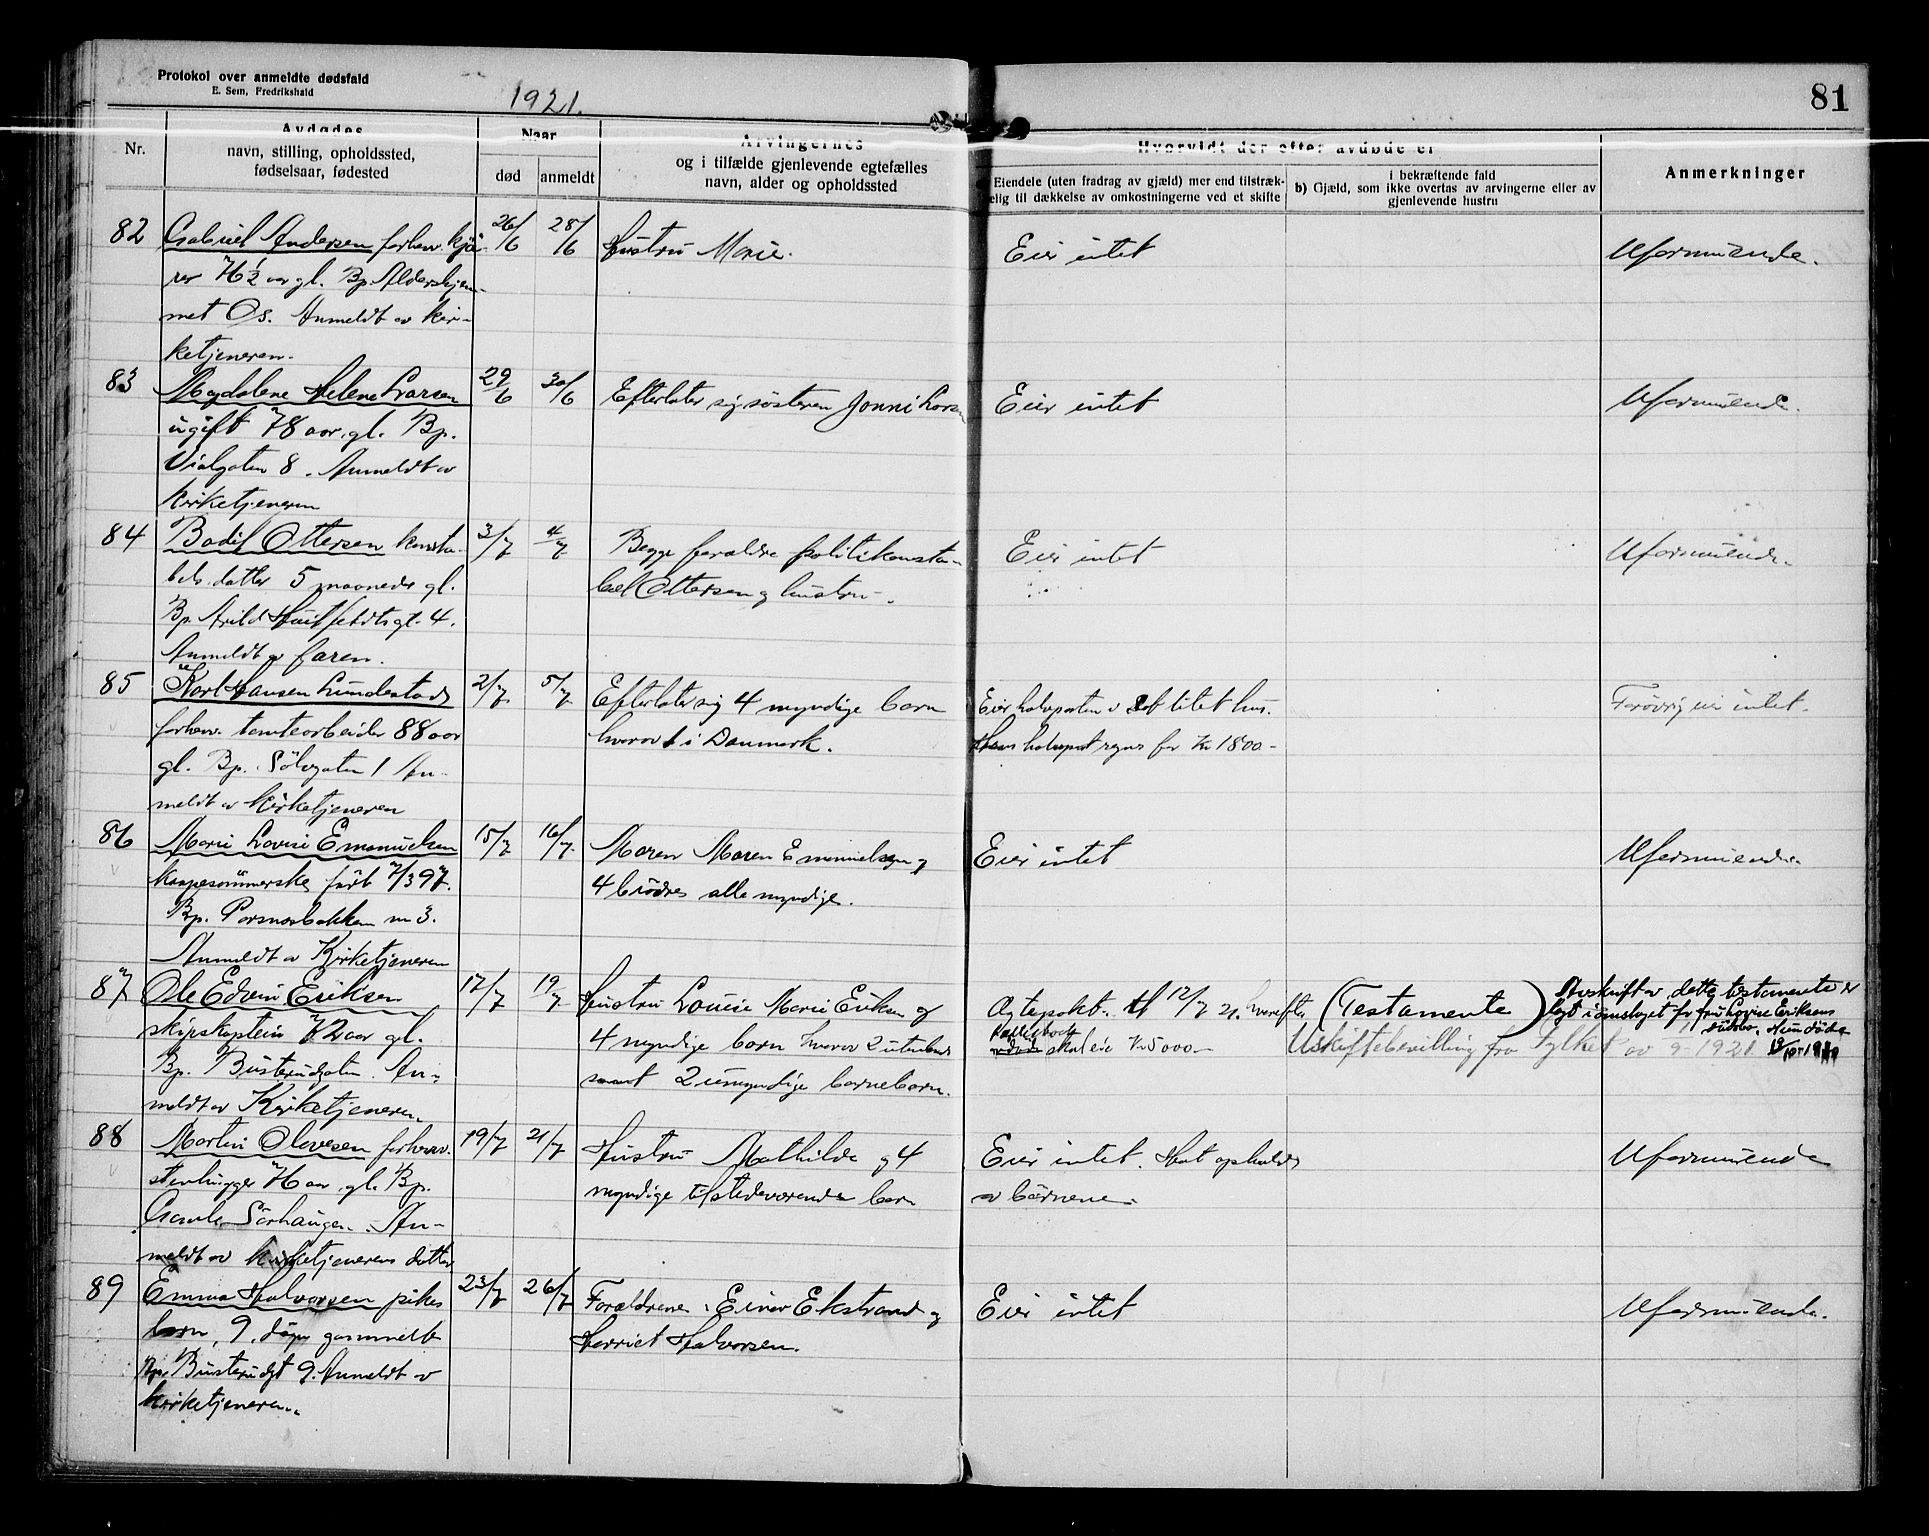 Protokol over anmeldte dødsfald
E. Sem, Fredrikshald
1921.
81
Nr.
Avdødes
navn, stilling, opholdssted,
fødselsaar, fødested
Naar
død
anmeldt
Arvingernes
og i tilfælde gjenlevende egtefælles
navn, alder og opholdssted
Hvorvidt der efter avdøde er
Eiendele (uten fradrag av gjæld) mer end tilstræk-
elig til dækkelse av omkostningerne ved et skifte
i bekræftende fald
b) Gjæld, som ikke overtas av arvingerne eller av
gjenlevende hustru
Anmerkninger
82
Gabriel Andersen forhenv. kjø-
rer 76½ aar gl. Bp. Aldershjem-
met Os. Anmeldt av kir-
ketjeneren.
26/6
28/6
Hustru Marie.
Eier intet
Uformuende.
83
Magdalene Helene Larsen
ugift 78 aar gl. Bp.
Vialgaten 8. Anmeldt av
kirketjeneren
29/6
30/6
Efterlater sig søsteren Jonni Larsen
Eier intet
Uformuende.
84
Bodil Ottersen konsta-
bels datter 5 maaneder gl.
Bp. Arild Huitfeldtsgt. 4.
Anmeldt av faren.
3/7
4/7
Begge forældre politikonsta-
bel Ottersen og hustru.
Eier intet
Uformuende.
85
Karl Hansen Lundestad
forhenv. tomtearbeider 88 aar
gl. Bp. Sölvgaten 1 An-
meldt av kirketjeneren
2/7
5/7
Efterlater sig 4 myndige barn
hvorav 1 i Danmark.
Eier halvparten av et litet hus.
Hans halvpart regnes for Kr 1800-
Forøvrig eier intet.
86
Marie Lovise Emanuelsen
kaapesömmerske født 7/3 97.
Bp. Porsnesbakken nr 3.
Anmeldt av Kirketjeneren
15/7
16/7
Moren Maren Emanuelsen og
4 brödre alle myndige.
Eier intet
Uformuende
87
Ole Edvin Eriksen
skipskaptein 72 aar gl.
Bp. Busterudgaten. An-
meldt av Kirketjeneren.
17/7
19/7
Hustru Louise Marie Eriksen og
4 myndige barn hvorav 2 utenlands
samt 2 umyndige barnebarn.
Egtepakt. af 12/7 21. hvorefter
skal eie Kr 5000.-
(Testamente)
Uskiftebevilling fra Fylket av 9-1921.
Avskrift av dette testamente er
lagt i omslaget for fru Lovise Eriksens
88
Martin Olavesen forhenv.
stenhugger 76 aar gl. Bp.
Gamle Sörhaugen. An-
meldt av kirketjenerens datter
19/7
21/7
Hustru Mathilde og 4
myndige tilstedeværende barn
Eier intet. Hat ophold
av börnene.
Uformuende
89
Emma Halvorsen pike-
barn, 9 dage gammelt
Bp. Busterudgt 9. Anmeldt av
kirketjeneren.
23/7
26/7
Forældrene: Einar Ekstrand og
Harriet Halvorsen.
Eier intet
Uformuende.